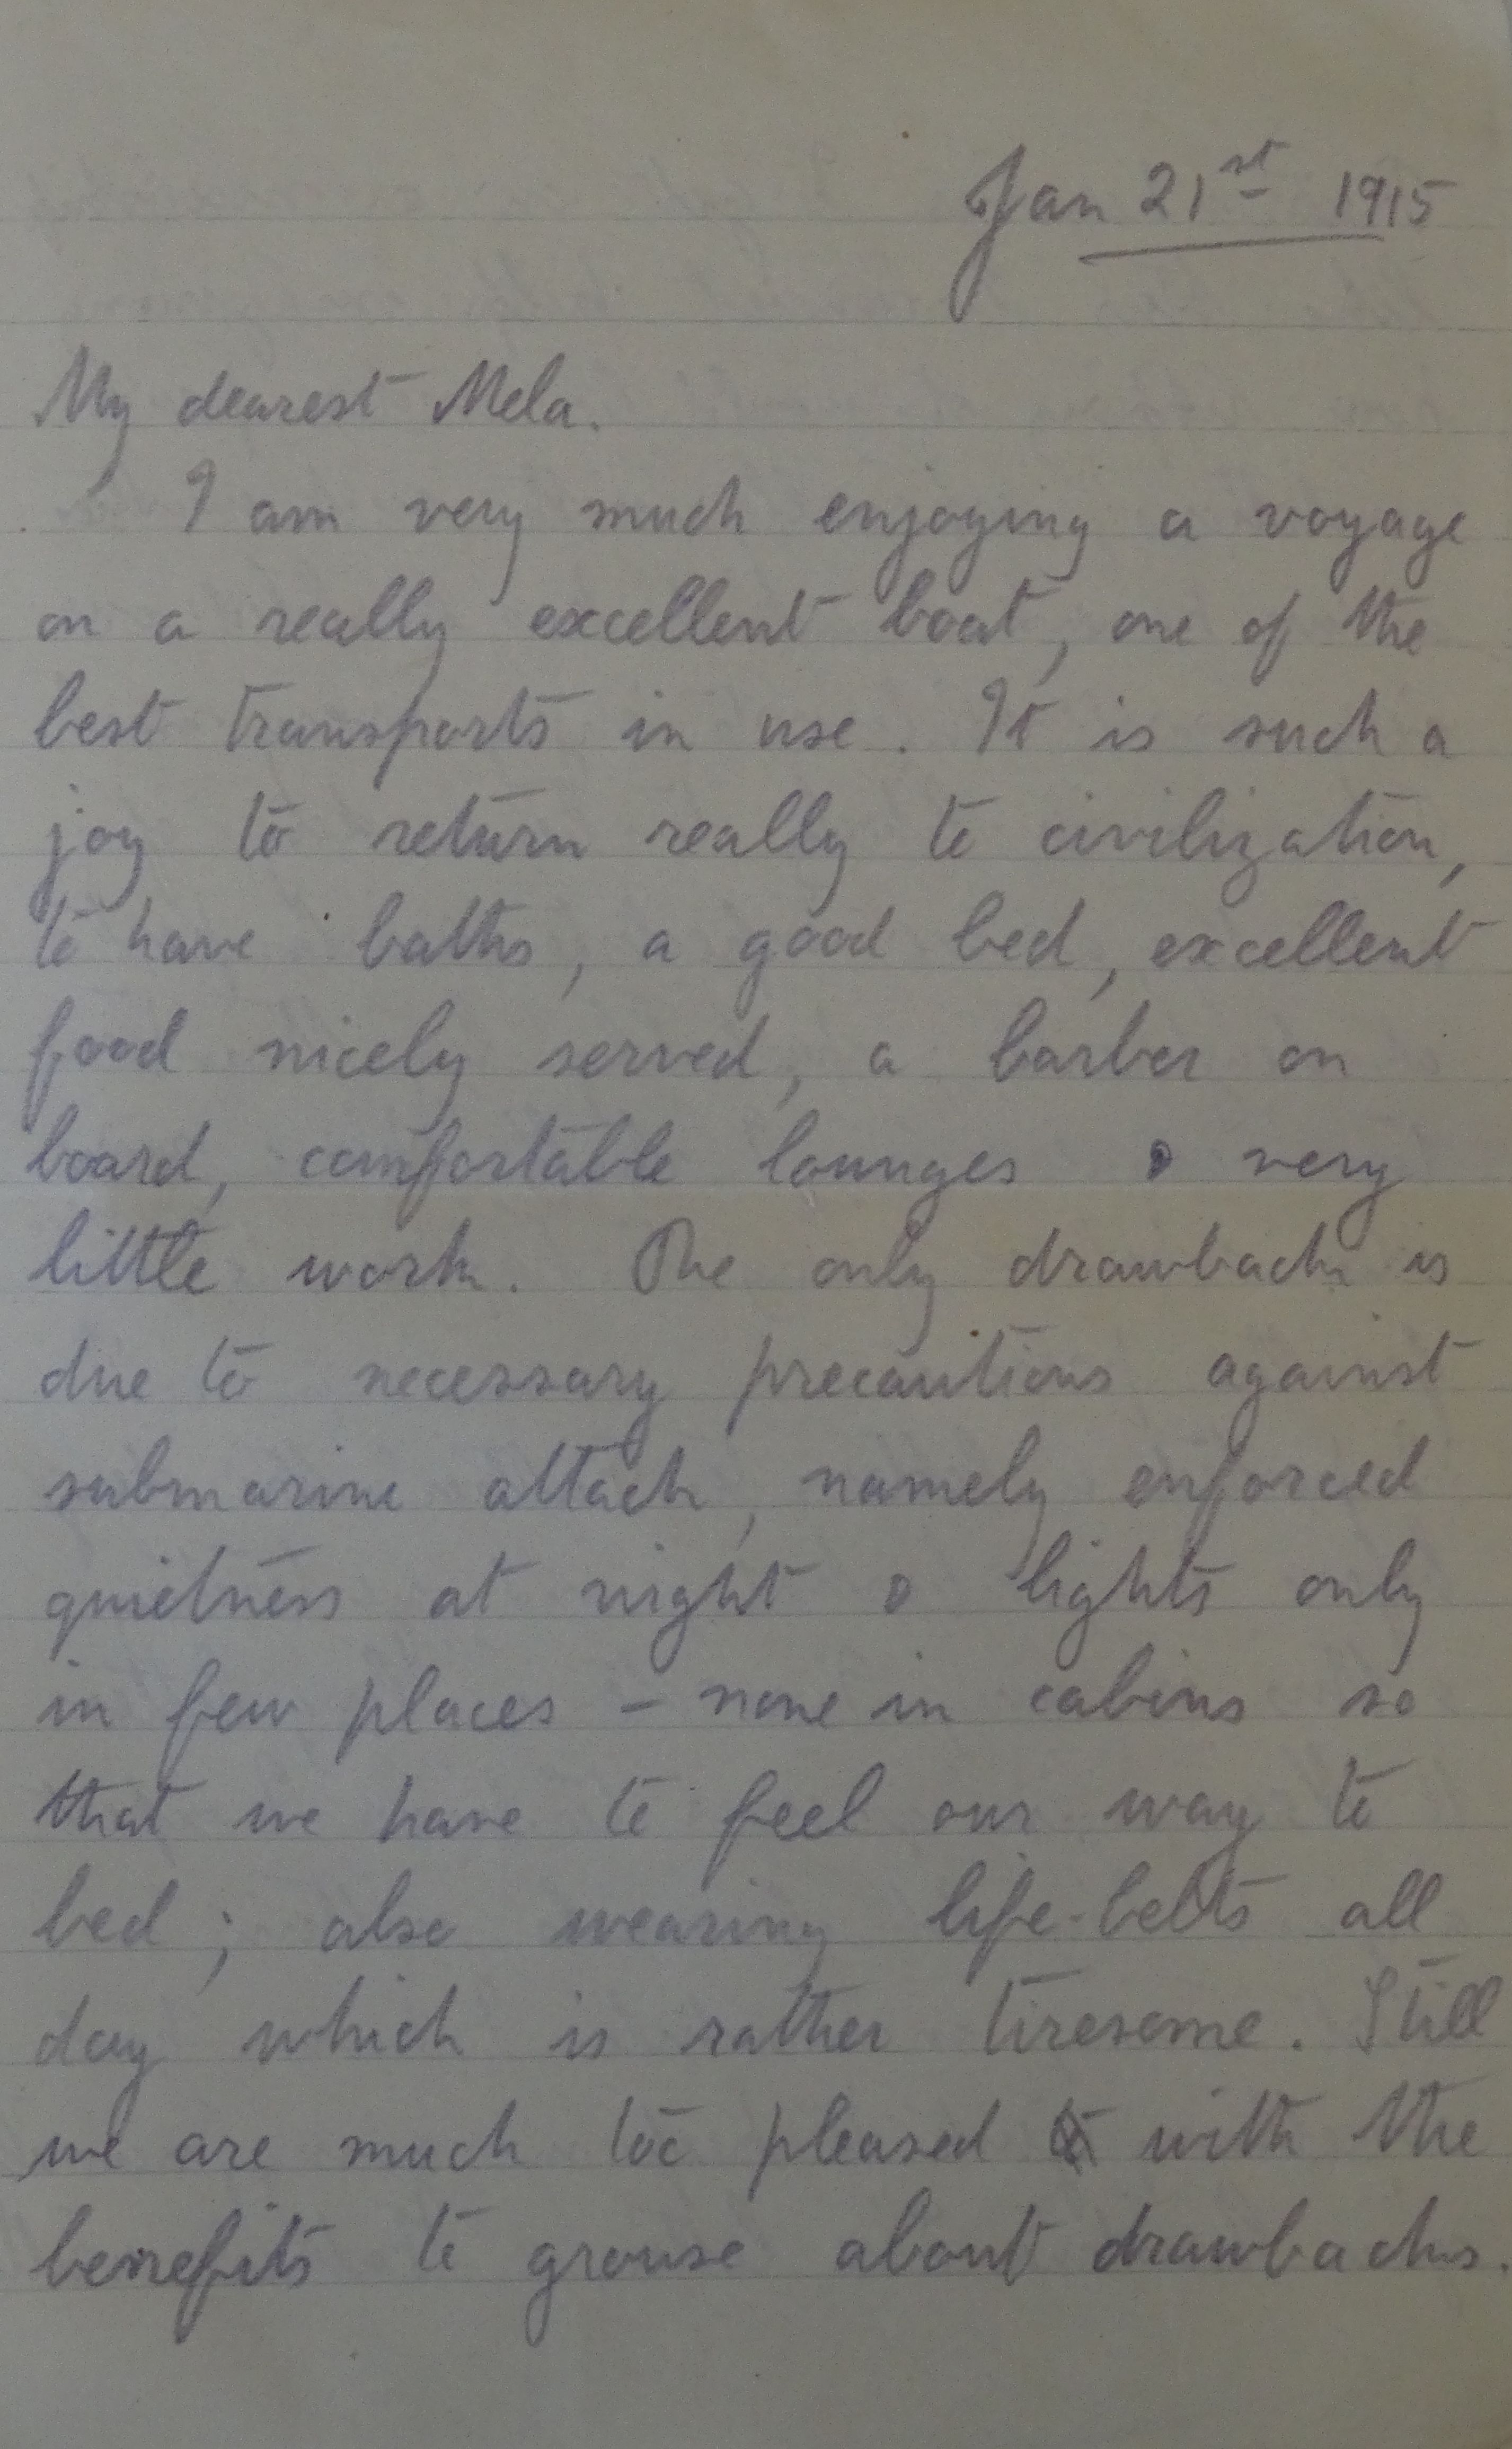 Jan 21st 1915
My dearest Mela.
I am very much enjoying a voyage
on a really excellent boat, one of the
best transports in use. It is such a
joy to return really to civilization,
to have baths, a good bed, excellent
food nicely served, a barber on
board, comfortable lounges & very
little work. The only drawback is
due to necessary precautions against
submarine attack, namely enforced
quietness at night & lights only
in few places – none in cabins so
that we have to feel our way to
bed; also wearing life-belts all
day which is rather tiresome. Still
we are much too pleased with the
benefits to grouse about drawbacks.